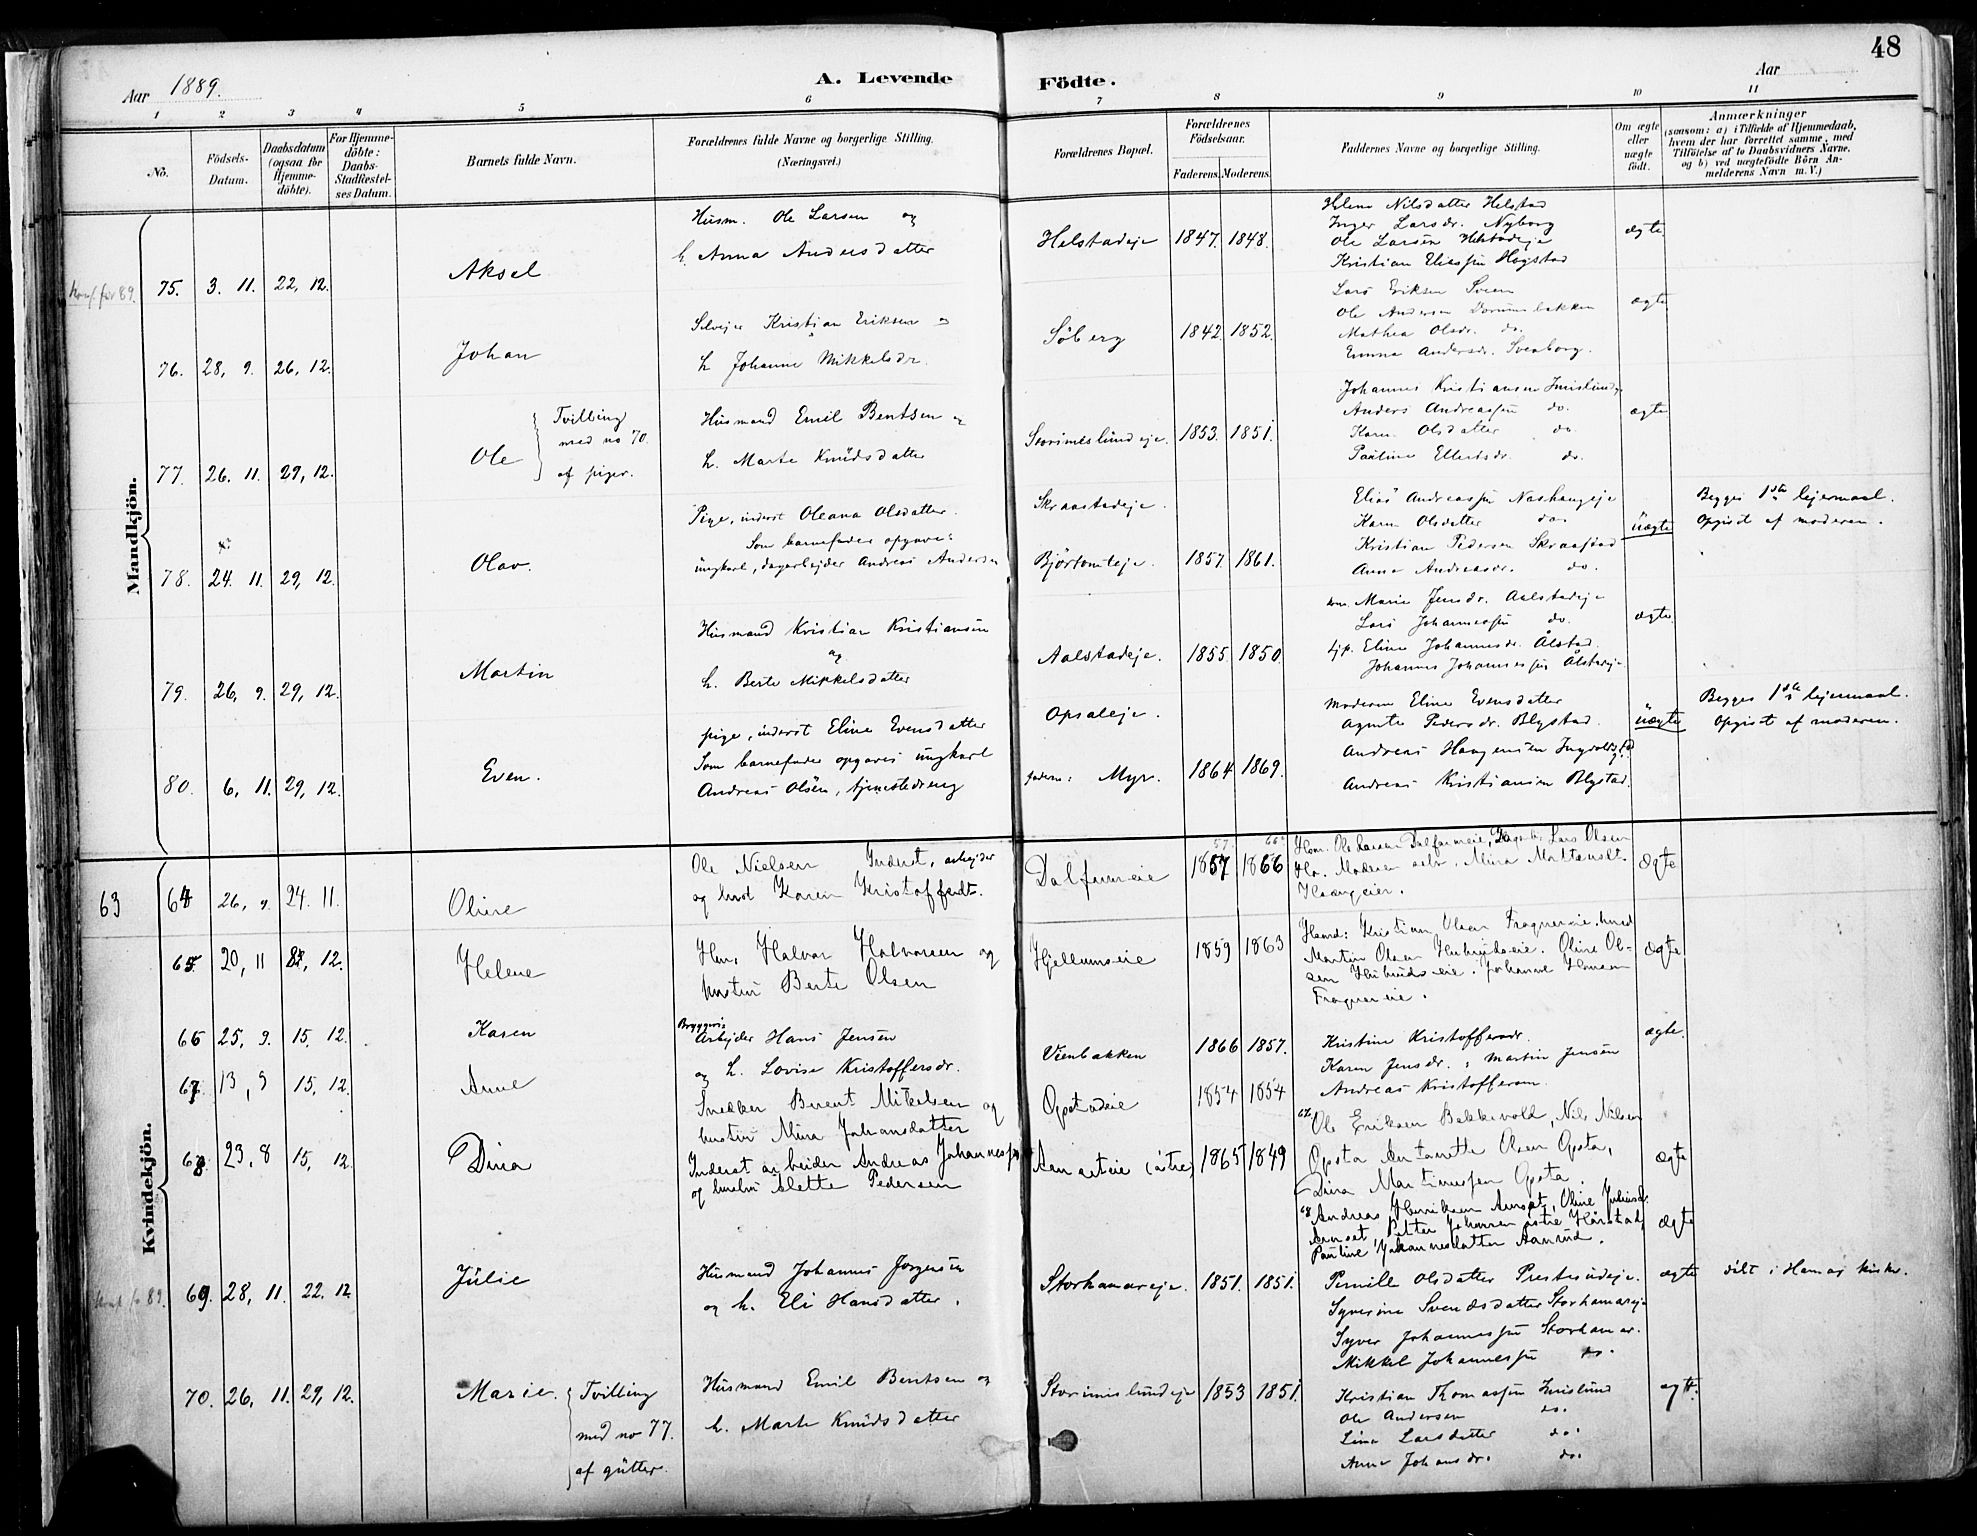 48
Aar 1889.
A. Levende Födte.
Aar
1 2 3 4 5 6 7 8 9 10 11
No.
Födsels-Datum.
Daabsdatum (ogsaa for Hjemme-döbte).
For Hjemme-döbte: Daabs-Stadfæstel-ses Datum.
Barnets fulde Navn.
Forældrenes fulde Navne og borgerlige Stilling. (Næringsvei.)
Forældrenes Bopæl.
Forældrenes Födselsaar.
Faderens. Moderens.
Faddernes Navne og borgerlige Stilling.
Om ægte eller uægte født.
Anmærkninger
(saasom: a) i Tilfælde af Hjemmedaab,
hvem der har forrettet samme, med
Tilföielse af to Daabsvidners Navne.
og b) ved uægtefödte Börn An-
melderens Navn m. V.)
Mandkjön.
75. 3. 11. 22, 12. Aksel
Husm. Ole Larsen og
h. Anna Andersdatter
Helstadeje 1847. 1848.
Helene Nilsdatter Helstad
Inger Larsdr. Nyborg
Ole Larsen Helstadeje
Kristian Eliassen Hogstad
ægte
76. 28, 9. 26, 12. Johan
Selvejer Kristian Eriksen og
h. Johanne Mikkelsdr.
Söberg 1842. 1852.
Lars Eriksen Sveen
Ole Andersen
Mathea Olsdr. do.
Emma Andersdr. Svenborg.
ægte
77. 26. 11. 29, 12. Ole
Tvilling
med no 70.
af piger.
Husmand Emil Bentsen og
h. Marte Knudsdatter
Storimeslundeje. 1853. 1851.
Johannes Kristiansen Imislund
Anders Andreassen do.
Karen Olsdatter do.
Pauline Ellertsdr. do.
ægte
78. 24. 11. 29, 12. Olav.
Pige, inderst Oleana Olsdatter.
Som barnefader opgaves:
ungkarl, dagarbejder Andreas Andersen
Skraastadeje.
Björtomteje. 1857. 1861.
Elias Andreassen Nashaugeje
Karen Olsdatter do.
Kristian Pedersen Skraastad
Anne Andreasdr. do.
uægte
Begges 1ste lejermaal.
Opgivet af moderen.
79. 26, 9. 29, 12. Martin
Husmand Kristian Kristiansen
og
h. Berte Mikkelsdatter
Aalstadeje. 1855. 1850.
Marie Jensdr. Aalstadeje
Lars Johannessen do.
Eline Johannesdr. Ålstad
Johannes Johannessen Ålstadeje
ægte
80. 6, 11. 29, 12. Even.
pige, inderst Eline Evensdatter
Som barnefader opgaves ungkarl
Andreas Olsen, tjenestedreng
Opsaleje.
faderen: Myr. 1864. 1869.
Moderen Eline Evensdatter
Agnete Pedersdr. Blystad.
Andreas Haagensen
Andreas Kristiansen Blystad.
uægte
Begges 1ste lejermaal.
Opgivet af moderen.
Kvindekjön.
63 64 26, 9. 24. 11. Oline
Ole Nielsen Inderst, arbejder
og hust Karen Kristoffersdt.
Dalfarmeie 1857 1866
Moderen selv.
ægte
65 20, 11 12. Helene
Hm. Halvor Halvorsen og
hustru Berte Olsen
Hjellumseie 1859 1863
Kristian Olsen Fragnereie.
Martin Olsen
Johanne Hansen
Fragnereie.
ægte
66 25, 9. 15, 12. Karen
Bryggeri
Arbejder Hans Jensen
og h. Lovise Kristoffersdr.
Vienbakken 1866 1857.
Kristine Kristoffersdr.
Karen Jensdr. Martin Jensen
Andreas Kristoffersen
ægte.
67. 13, 9 15, 12. Anne
Snedker Berent Mikelsen og
hustru Mina Johansdatter
Opstadeie 1854 1854
67. Ole Eriksen Bekkevold, Nils Nilsen
Opsta Antonette Olsen Opsta,
Dina Martinussen Opsta.
ægte
68. 23, 8 15, 12. Dina
Inderst arbeider Andreas Johannessen
og hustru Alette Pedersen
Aanerteie (östre) 1865 1849
68 Andreas Henriksen
Petter Johansen östre Hårstad,
Pauline Johannesdatter Aanrud.
ægte
69. 28, 11. 22. 12. Julie
Husmand Johannes Jørgensen
og h. Eli Hansdatter.
Storhamareje. 1851. 1851.
Pernille Olsdatter Prestrudeje.
Syverine Svendsdatter Storhamareje
Syver Johannessen Storhamar.
Mikkel Johannessen do.
ægte
døbt i Hamar kirke.
70. 26, 11. 29, 12. Marie.
Tvilling
med no 77.
af gutter.
Husmand Emil Bentsen og
h. Marte Knudsdatter
Storimislundeje 1853 1851.
Kristian Thomassen Imislund
Ole Andersen do.
Lina Larsdatter do.
Anne Johansdr. do.
ægte.